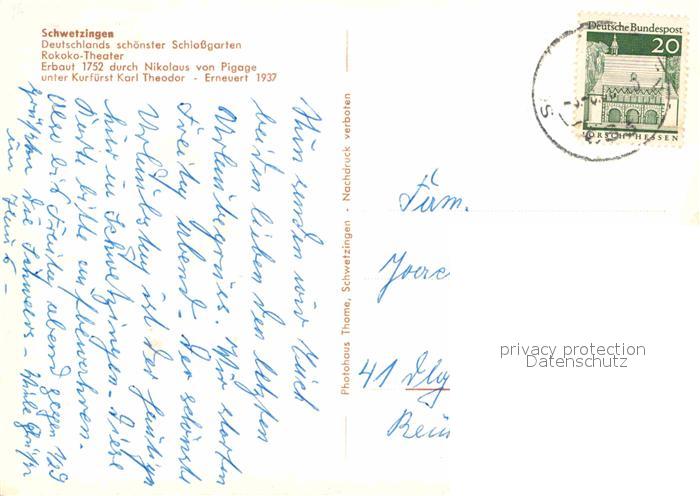 Schwetzingen
Deutschlands schönster Schloßgarten
Rokoko-Theater
Erbaut 1752 durch Nikolaus von Pigage
unter Kurfürst Karl Theodor - Erneuert 1937
Deutsche Bundespost
20
LORSCH/HESSEN
Photohaus Thome, Schwetzingen - Nachdruck verboten
Nun senden wir Euch
beiden lieben den letzten
Urlaubsgruss. Wir starten
Freitag abend. Der schönste
Urlaubstag ist der heutige
hier in Schwetzingen. Diese
Karte bitte aufbewahren.
Also bis Freitag abend gegen 1/2 9
grüßen die
Fam.
41
privacy protection
Datenschutz